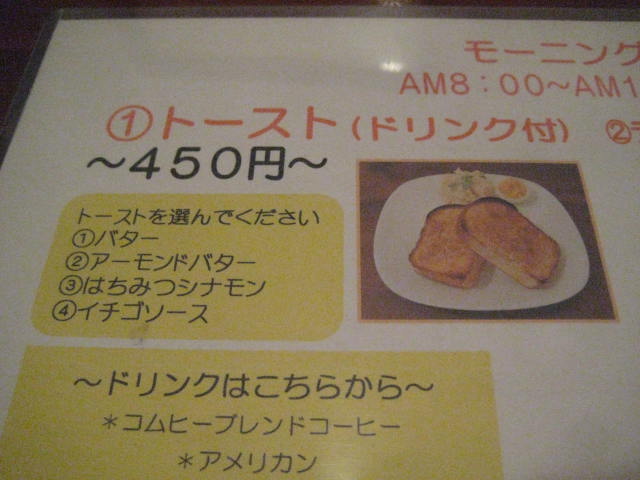 モーニング
AM8：00～AM1
①トースト(ドリンク付) ②
～450円～
トーストを選んでください
①バター
②アーモンドバター
③はちみつシナモン
④イチゴソース
～ドリンクはこちらから～
＊コムヒーブレンドコーヒー
＊アメリカン